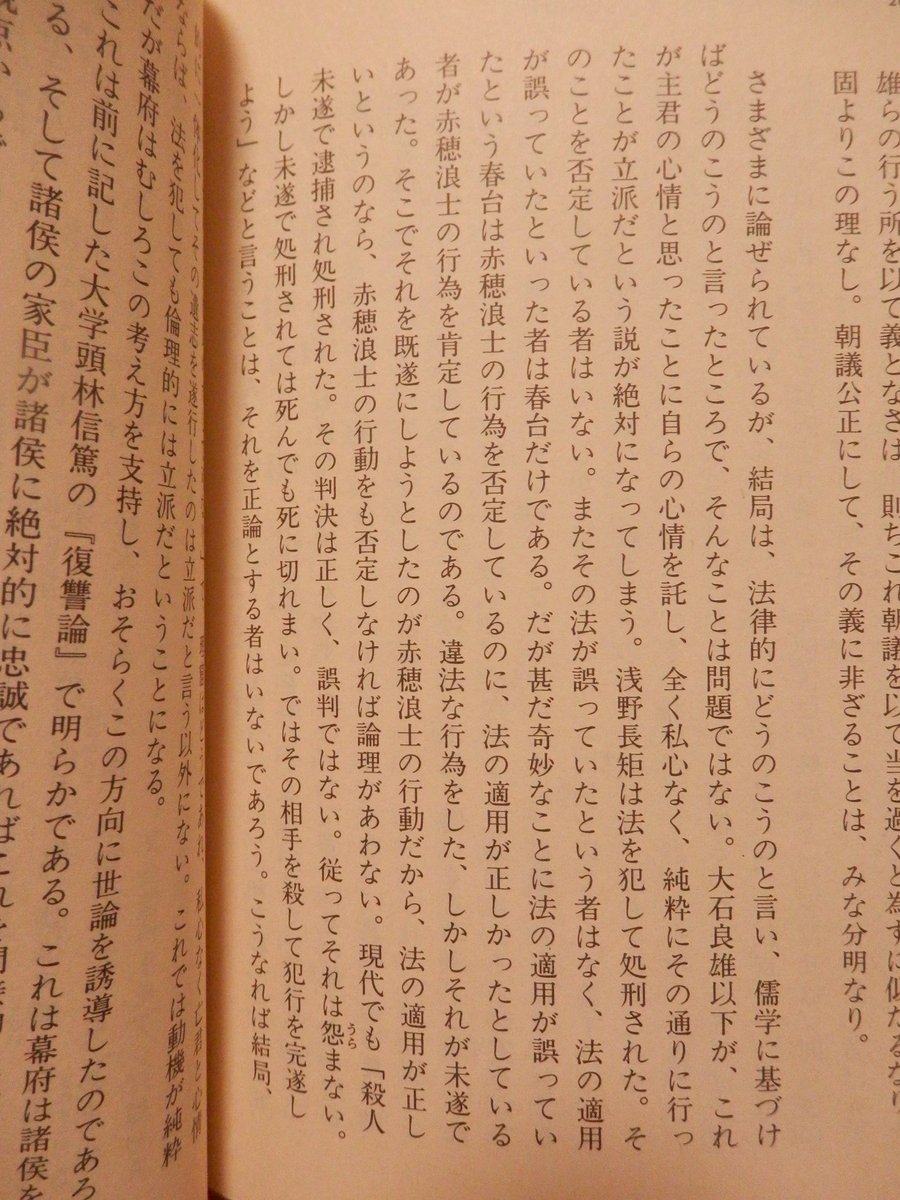 雄らの行う所を以て義となさば、則ちこれ朝議を以て当を過ぐと為すに似たるなり
固よりこの理なし。朝議公正にして、その義に非ざることは、みな分明なり。
さまざまに論ぜられているが、結局は、法律的にどうのこうのと言い、儒学に基づけ
ばどうのこうのと言ったところで、そんなことは問題ではない。大石良雄以下が、これ
が主君の心情と思ったことに自らの心情を託し、全く私心なく、純粋にその通りに行っ
たことが立派だという説が絶対になってしまう。浅野長矩は法を犯して処刑された。そ
のことを否定している者はいない。またその法が誤っていたという者はなく、法の適用
が誤っていたといった者は春台だけである。だが甚だ奇妙なことに法の適用が誤ってい
たという春台は赤穂浪士の行為を否定しているのに、法の適用が正しかったとしている
者が赤穂浪士の行為を肯定しているのである。違法な行為をした、しかしそれが未遂で
あった。そこでそれを既遂にしようとしたのが赤穂浪士の行動だから、法の適用が正し
いというのなら、赤穂浪士の行動をも否定しなければ論理があわない。現代でも「殺人
未遂で逮捕され処刑された。その判決は正しく、誤判ではない。従ってそれは怨まない。
うら
しかし未遂で処刑されては死んでも死に切れまい。ではその相手を殺して犯行を完遂し
よう」などと言うことは、それを正論とする者はいないであろう。こうなれば結局、
私心なく亡君と心情
その遺志を遂行したのは立派だと言う以外にない。これでは動機が純粋
ならば、法を犯しても倫理的には立派だということになる。
だが幕府はむしろこの考え方を支持し、おそらくこの方向に世論を誘導したのであろ
これは前に記した大学頭林信篤の『復讐論』で明らかである。これは幕府は諸侯を
る、そして諸侯の家臣が諸侯に絶対的に忠誠であればこれを